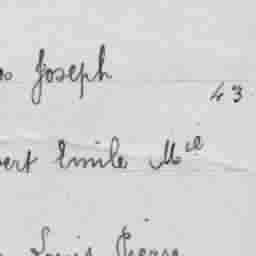 Joseph
43
Emile Mce
Louis Pierre